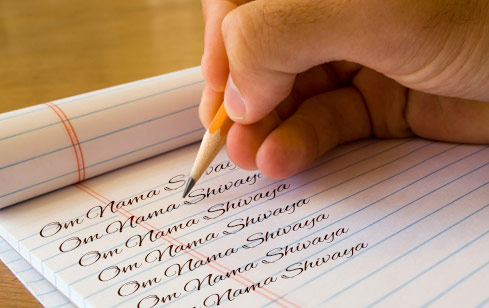 Om Nama Shivaya
Om Nama Shivaya
Om Nama Shivaya
Om Nama Shivaya
Om Nama Shivaya
Om Nama Shivaya